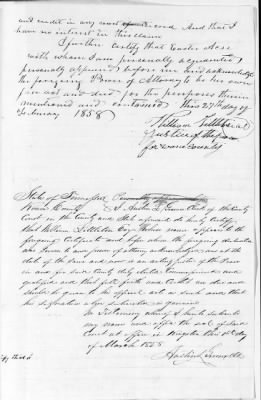 and credit in any court of Record. And that I
have no interest in this claim
I further certify that
with whom I am personally acquainted,
personally appeared before me and acknowledged
the foregoing Power of Attorney to be his own
free act and deed for the purposes therein
mentioned and contained this 27th day of
February 1858
William Littleton
Justice of the peace
for Roane County
State of Tennessee
Roane County I Austin L. Clerk of the County
Court in the County and State aforesaid do hereby Certify
that William Littleton Esqr whose name appears to the
foregoing Certificate and before whom the foregoing declaration
was and power of attorney acknowledged was at the
date of the same and now is an acting Justice of the Peace
in and for said County duly elected Commissioned and
qualified and that full faith and Credit are due and
should be given to his official acts as such and that
his signature is genuine
In Testimony whereof I hereto subscribe
my name and affix the seal of said
Court at office in Kingston this day
of March 1858